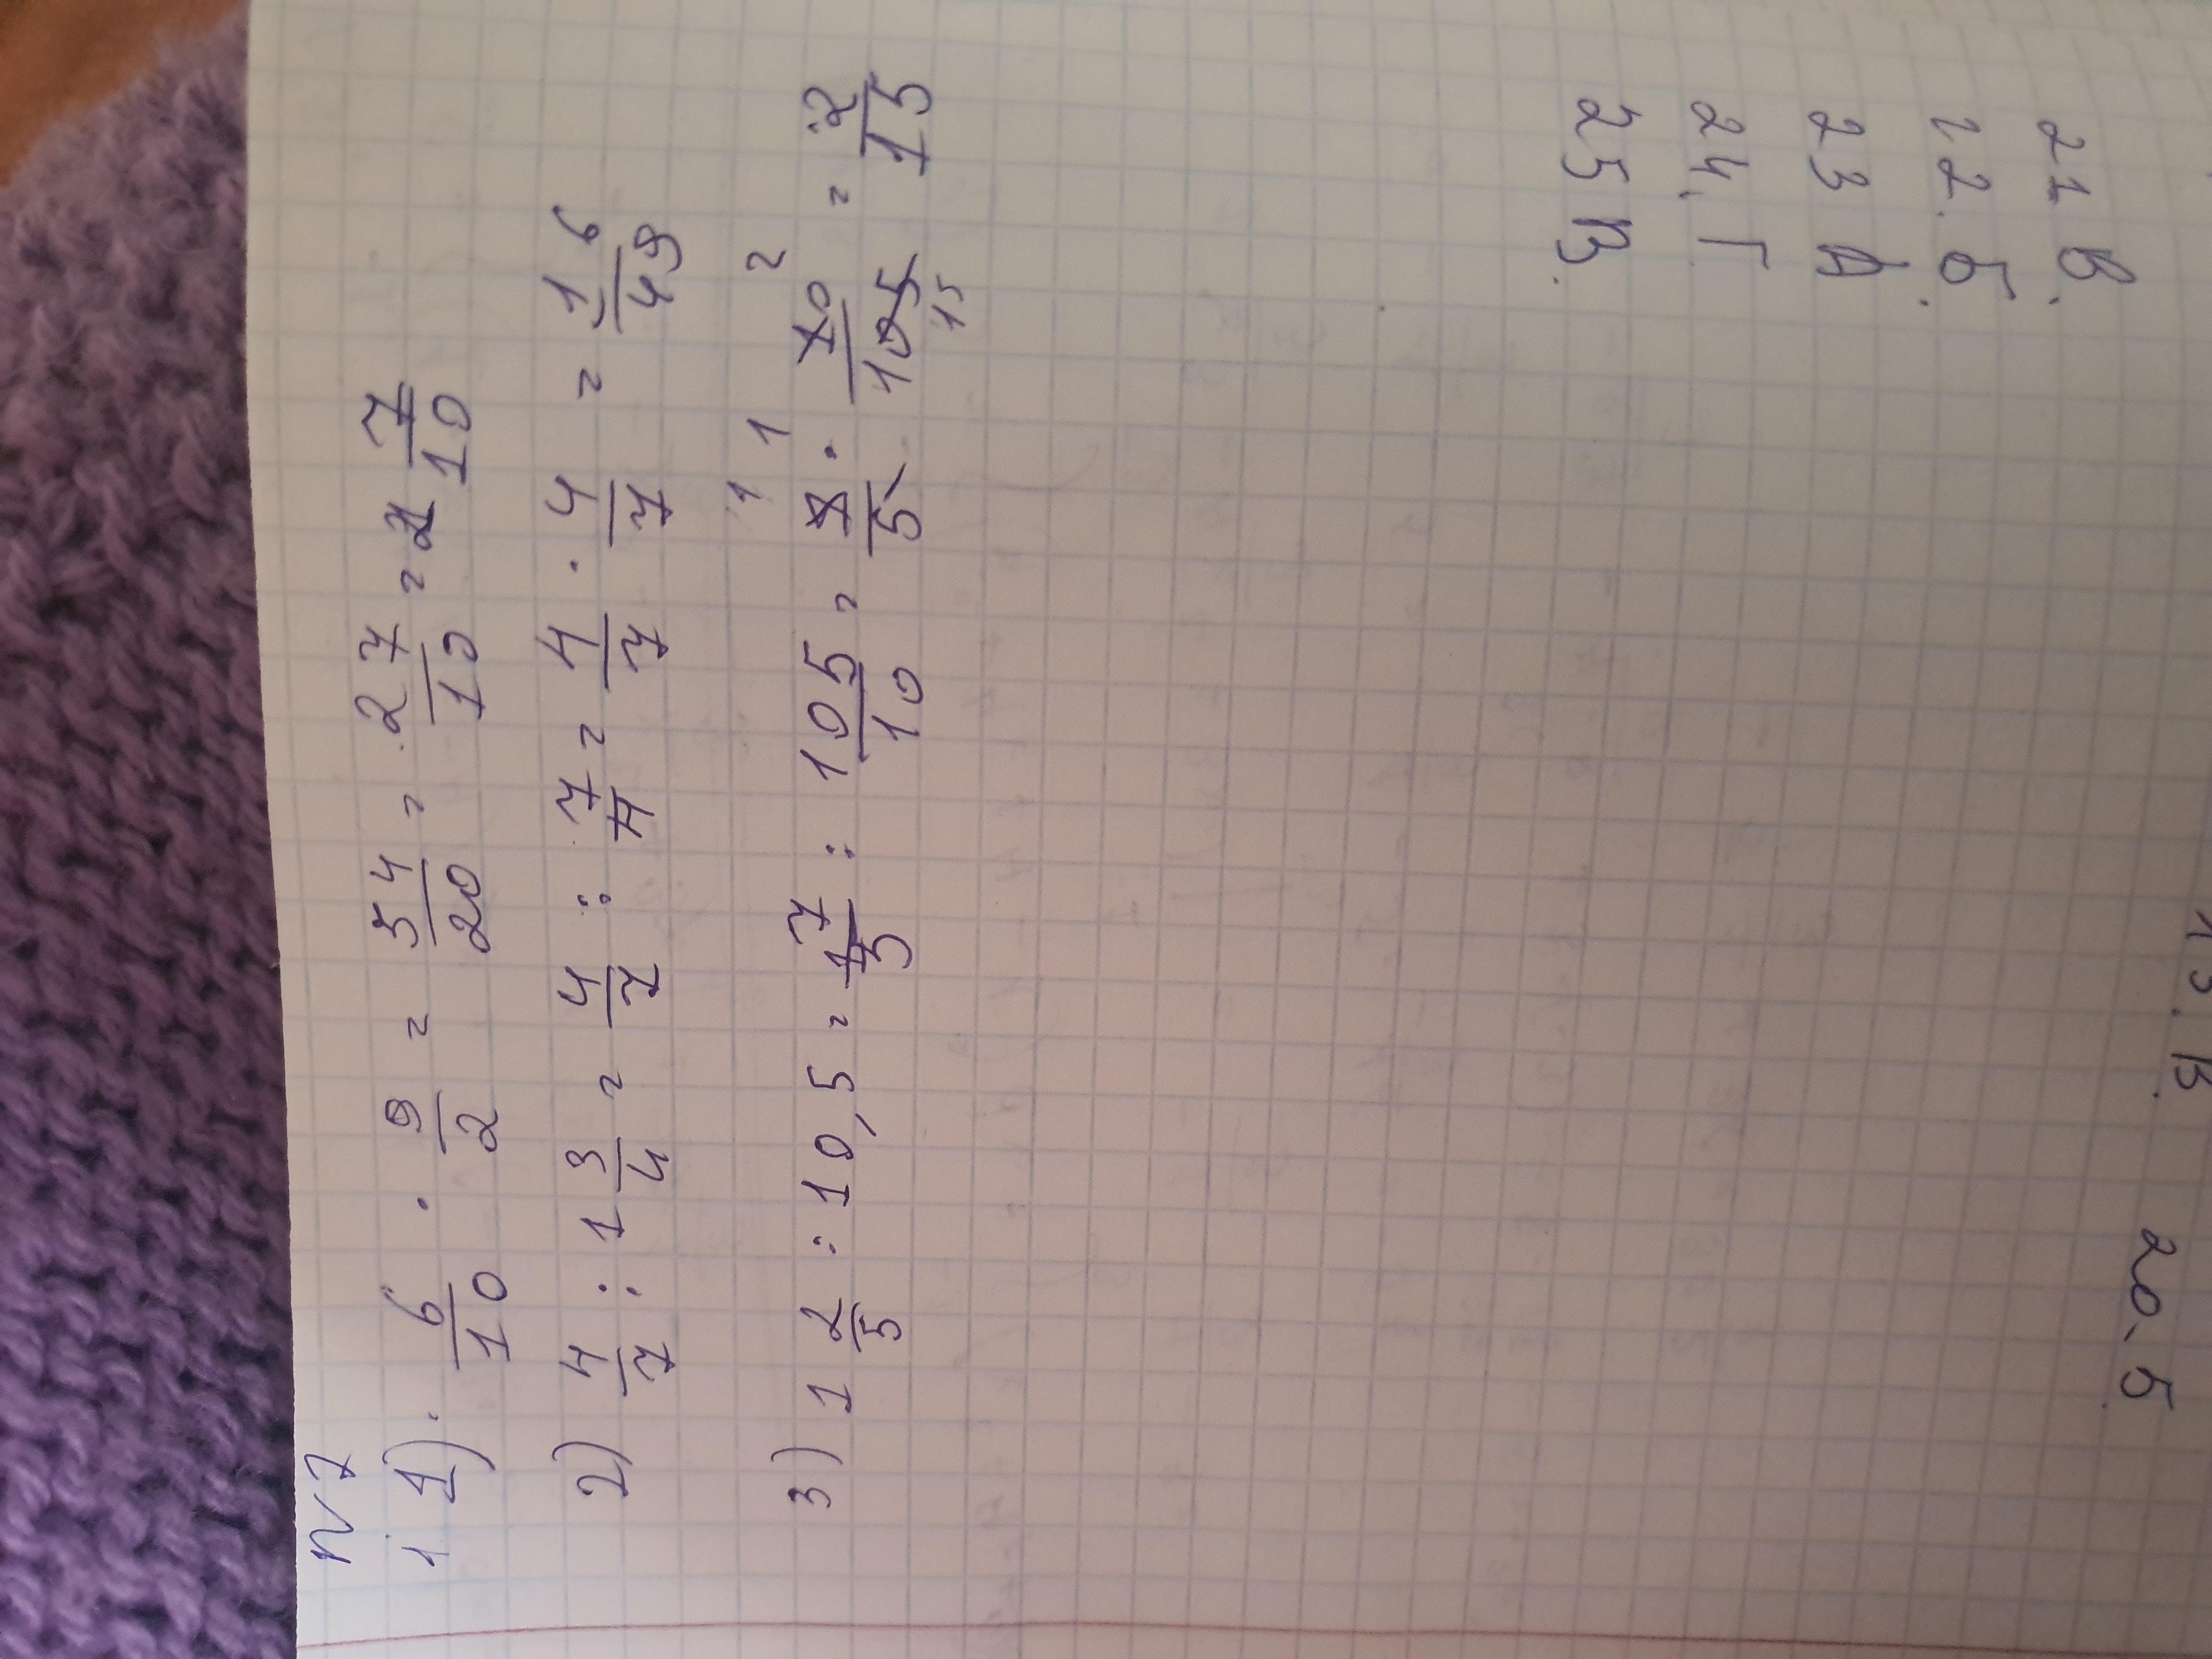 N 7
1. 1). 6/10 · 9/2 = 54/20 = 27/10 = 2 7/10
2) 4/7 : 1 3/4 = 4/7 : 7/4 = 4/7 · 4/7 = 16/49
3) 1 2/5 : 10,5 = 7/5 : 105/10 = 7/5 · 10/105 = 2/15
1 1 2
15
21 В.
22. Б.
23 А
24. Г
25 В.
20. Б.